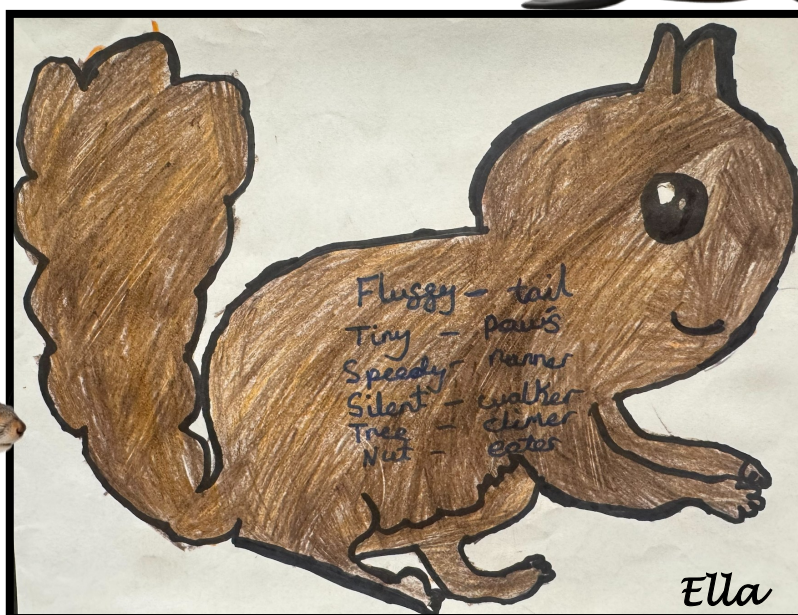 Fluffy - tail
Tiny - paws
Speedy - runner
Silent - walker
Tree - climer
Nut - eater
Ella